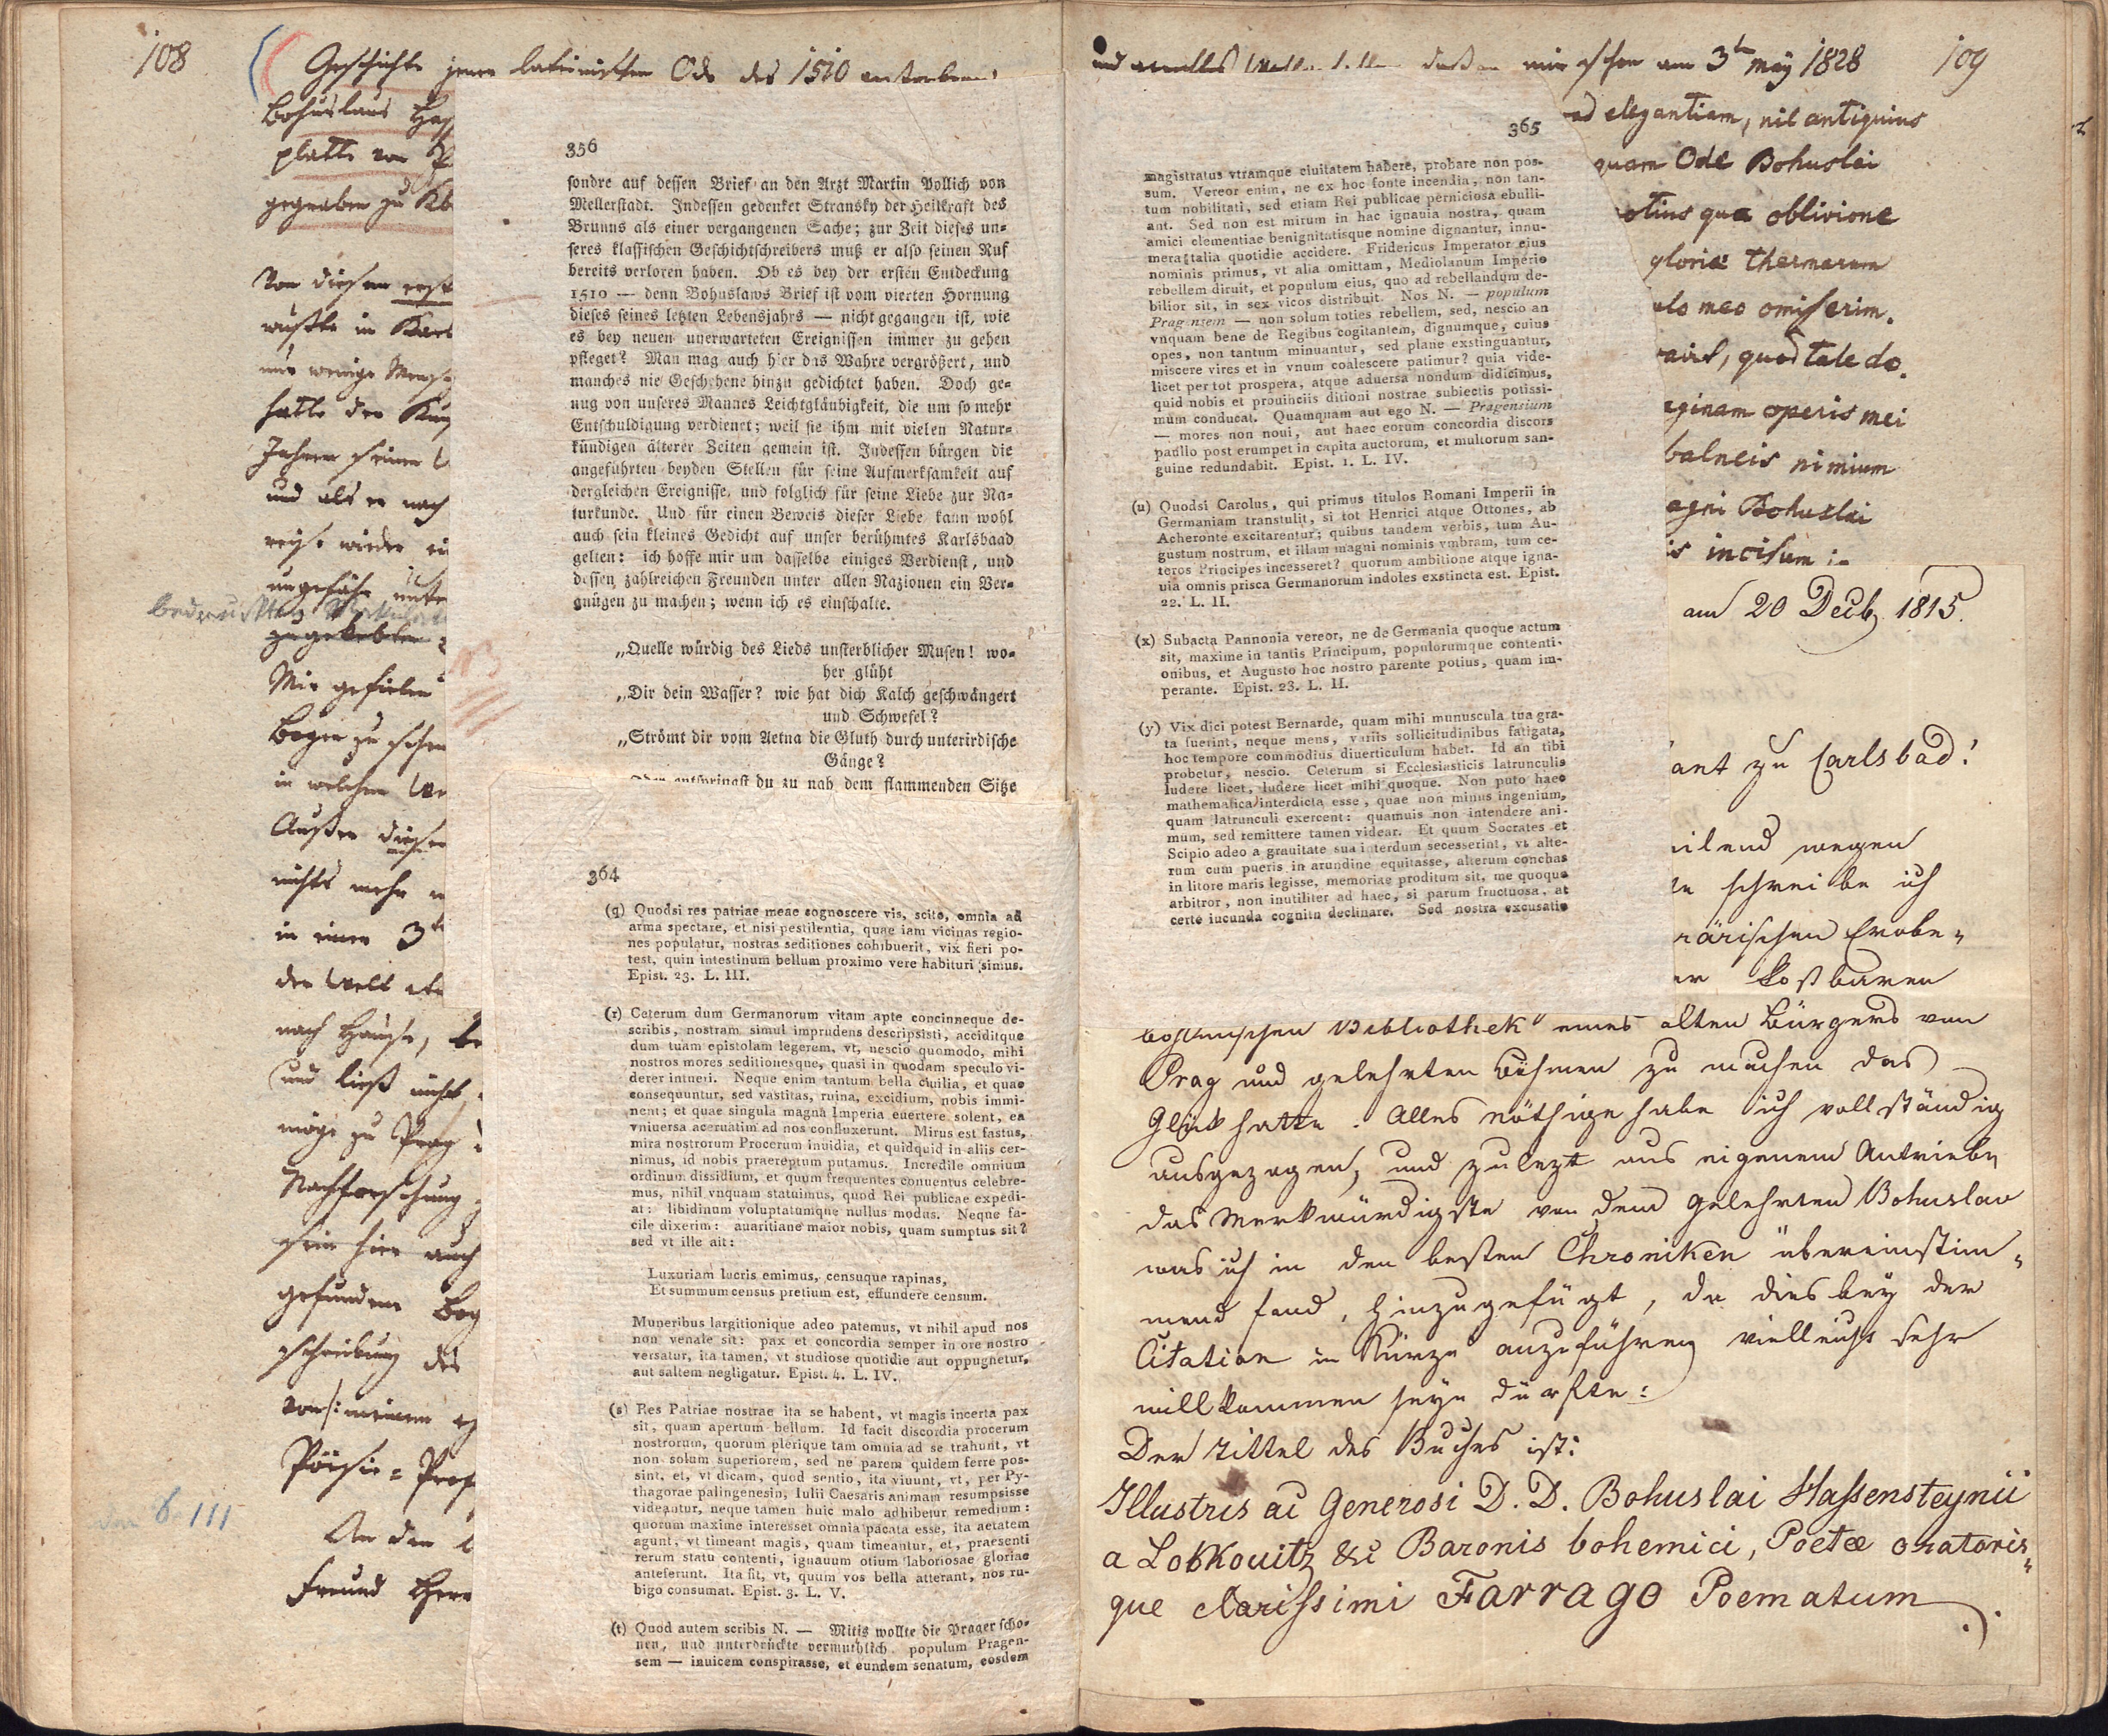 108
Geschichte jener lateinischen Ode des 1510 verstorbenen
Bohuslaus Has
platte von P
gegraben zu Kb
Von diesem erst
wußte in Karl
nur wenige Mensch
hatte der Kup
Jahren seiner
und als er nach
reise wieder ei
ungefähr unte
zugeklebten
Mir gefielen
Bogen zu sehen
in welchen We
Außer dieser
nichts mehr
in einer 3te
der Welt
nach Hause, be
und ließ nicht
möge zu Prag
Nachforschung
sein hier auch
gefundene Bog
schreibung des
von meinem
Pöisie = Prof
An den
Freund Herr
von 6. 111
356
sondre auf dessen Brief an den Arzt Martin Pollich von
Mellerstadt. Indessen gedenket Stransky der Heilkraft des
Brunns als einer vergangenen Sache; zur Zeit dieses un=
seres klassischen Geschichtschreibers muß er also seinen Ruf
bereits verloren haben. Ob es bey der ersten Entdeckung
1510 — denn Bohuslaws Brief ist vom vierten Hornung
dieses seines letzten Lebensjahrs — nicht gegangen ist, wie
es bey neuen unerwarteten Ereignissen immer zu gehen
pfleget? Man mag auch hier das Wahre vergrößert, und
manches nie Geschehene hinzu gedichtet haben. Doch ge=
nug von unseres Mannes Leichtgläubigkeit, die um so mehr
Entschuldigung verdienet; weil sie ihm mit vielen Natur=
kündigen älterer Zeiten gemein ist. Indessen bürgen die
angeführten beyden Stellen für seine Aufmerksamkeit auf
dergleichen Ereignisse, und folglich für seine Liebe zur Na=
turkunde. Und für einen Beweis dieser Liebe kann wohl
auch sein kleines Gedicht auf unser berühmtes Karlsbaad
gelten: ich hoffe mir um dasselbe einiges Verdienst, und
dessen zahlreichen Freunden unter allen Nazionen ein Ver=
gnügen zu machen; wenn ich es einschalte.
„Quelle würdig des Lieds unsterblicher Musen! wo=
her glüht
„Dir dein Wasser? wie hat dich Kalch geschwängert
und Schwefel?
„Strömt dir vom Aetna die Gluth durch unterirdische
Gänge?
Oder entspringst du zu nah dem flammenden Sitze
364
(q) Quodsi res patriae meae cognoscere vis, scito, omnia ad
arma spectare, et nisi pestilentia, quae iam vicinas regio-
nes populatur, nostras seditiones cohibuerit, vix fieri po-
test, quin intestinum bellum proximo vere habituri simus.
Epist. 23. L. III.
(r) Ceterum dum Germanorum vitam apte concinneque de-
scribis, nostram simul imprudens descripsisti, acciditque
dum tuam epistolam legerem, vt, nescio quomodo, mihi
nostros mores seditionesque, quasi in quodam speculo vi-
derer intueri. Neque enim tantum bella ciuilia, et quae
consequuntur, sed vastitas, ruina, excidium, nobis immi-
nent; et quae singula magna Imperia euertere solent, ea
vniuersa aceruatim ad nos confluxerunt. Mirus est fastus,
mira nostrorum Procerum inuidia, et quidquid in aliis cer-
nimus, id nobis praereptum putamus. Incredile omnium
ordinum dissidium, et quum frequentes conuentus celebre-
mus, nihil vnquam statuimus, quod Rei publicae expedi-
at: libidinum voluptatumque nullus modus. Neque fa-
cile dixerim: auaritiane maior nobis, quam sumptus sit?
sed vt ille ait:
Luxuriam lucris emimus, censuque rapinas,
Et summum census pretium est, effundere censum.
Muneribus largitionique adeo patemus, vt nihil apud nos
non venale sit: pax et concordia semper in ore nostro
versatur, ita tamen, vt studiose quotidie aut oppugnetur,
aut saltem negligatur. Epist. 4. L. IV.
(s) Res Patriae nostrae ita se habent, vt magis incerta pax
sit, quam apertum bellum. Id facit discordia procerum
nostrorum, quorum plerique tam omnia ad se trahunt, vt
non solum superiorem, sed ne parem quidem ferre pos-
sint, et, vt dicam, quod sentio, ita viuunt, vt, per Py-
thagorae palingenesin, Iulii Caesaris animam resumpsisse
videantur, neque tamen huic malo adhibetur remedium:
quorum maxime interesset omnia pacata esse, ita aetatem
agunt, vt timeant magis, quam timeantur, et, praesenti
rerum statu contenti, ignauum otium laboriosae gloriae
anteferunt. Ita fit, vt, quum vos bella atterant, nos ru-
bigo consumat. Epist. 3. L. V.
(t) Quod autem scribis N. — Mitis wollte die Prager scho=
nen, und unterdrückte vermuthlich populum Pragen-
sem — inuicem conspirasse, et eundem senatum, eosdem
109
daß mir schon am 3ten may 1828
365
magistratus vtramque ciuitatem habere, probare non pos-
sum. Vereor enim, ne ex hoc fonte incendia, non tan-
tum nobilitati, sed etiam Rei publicae perniciosa ebulli-
ant. Sed non est mirum in hac ignauia nostra, quam
amici clementiae benignitatisque nomine dignantur, innu-
mera talia quotidie accidere. Fridericus Imperator eius
nominis primus, vt alia omittam, Mediolanum Imperio
rebellem diruit, et populum eius, quo ad rebellandum de-
bilior sit, in sex vicos distribuit. Nos N. — populum
Pragensem — non solum toties rebellem, sed, nescio an
vnquam bene de Regibus cogitantem, dignumque, cuius
opes, non tantum minuantur, sed plane exstinguantur,
miscere vires et in vnum coalescere patimur? quia vide-
licet per tot prospera, atque aduersa nondum didicimus,
quid nobis et prouinciis ditioni nostrae subiectis potissi-
mum conducat. Quamquam aut ego N. — Pragensium
— mores non noui, aut haec eorum concordia discors
paullo post erumpet in capita auctorum, et multorum san-
guine redundabit. Epist. 1. L. IV.
(u) Quodsi Carolus, qui primus titulos Romani Imperii in
Germaniam transtulit, si tot Henrici atque Ottones, ab
Acheronte excitarentur; quibus tandem verbis, tum Au-
gustum nostrum, et illam magni nominis vmbram, tum ce-
teros Principes incesseret? quorum ambitione atque igna-
uia omnis prisca Germanorum indoles exstincta est. Epist.
22. L. II.
(x) Subacta Pannonia vereor, ne de Germania quoque actum
sit, maxime in tantis Principum, populorumque contenti-
onibus, et Augusto hoc nostro parente potius, quam im-
perante. Epist. 23. L. II.
(y) Vix dici potest Bernarde, quam mihi munuscula tua gra-
ta fuerint, neque mens, variis sollicitudinibus fatigata,
hoc tempore commodius diuerticulum habet. Id an tibi
probetur, nescio. Ceterum si Ecclesiasticis latrunculis
ludere licet, ludere licet mihi quoque. Non puto haec
mathematica interdicta esse, quae non minus ingenium,
quam latrunculi exercent: quamuis non intendere ani-
mum, sed remittere tamen videar. Et quum Socrates et
Scipio adeo a grauitate sua interdum secesserint, vt alte-
rum cum pueris in arundine equitasse, alterum conchas
in litore maris legisse, memoriae proditum sit, me quoque
arbitror, non inutiliter ad haec, si parum fructuosa, at
certe iucunda cognitu declinare. Sed nostra excusatio
ad elegantiam, nil antiquius
quam Ode Bohuslai
otius qua oblivione
gloriæ thermarum
ulo meo omiserim.
airt, quod tale do.
aginam operis mei
balneis nimium
agni Bohuslai
is incisum in
am 20 Decb. 1815.
ant zu Carlsbad!
eilend wegen
schreibe ich
rärischen Erobe=
er kostbaren
böhmischen Bibliothek eines alten Bürgers von
Prag und gelehrten Böhmen zu machen das
Glück hatte. Alles nöthige habe ich vollständig
ausgezogen, und zulezt aus eigenem Antriebe
das Merkwürdigste von dem gelehrten Bohuslav
was ich in den besten Chroniken übereinstim=
mend fand, hinzugefügt, da dies bey der
Citation in Kürze anzuführen vielleicht sehr
willkommen seyn dürfte:
Der Tittel des Buches ist:
Illustris ac Generosi D. D. Bohuslai Hassensteynii
a Lobkouitz &c Baronis bohemici, Poetæ oratoris=
que clarissimi Farrago Poematum.